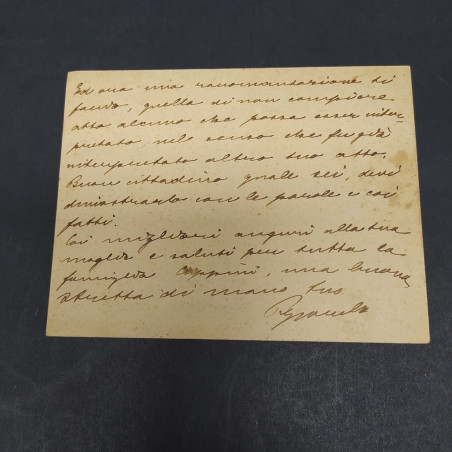 Ed ora una raccomandazione ti
faccio, quella di non compiere
atto alcuno che possa esser inter-
pretato nel senso che fu già
interpretato altro tuo atto.
Buon cittadino quale sei, devi
dimostrarlo con le parole e coi
fatti.
Coi migliori auguri alla tua
moglie e saluti per tutta la
famiglia una buona
stretta di mano tuo